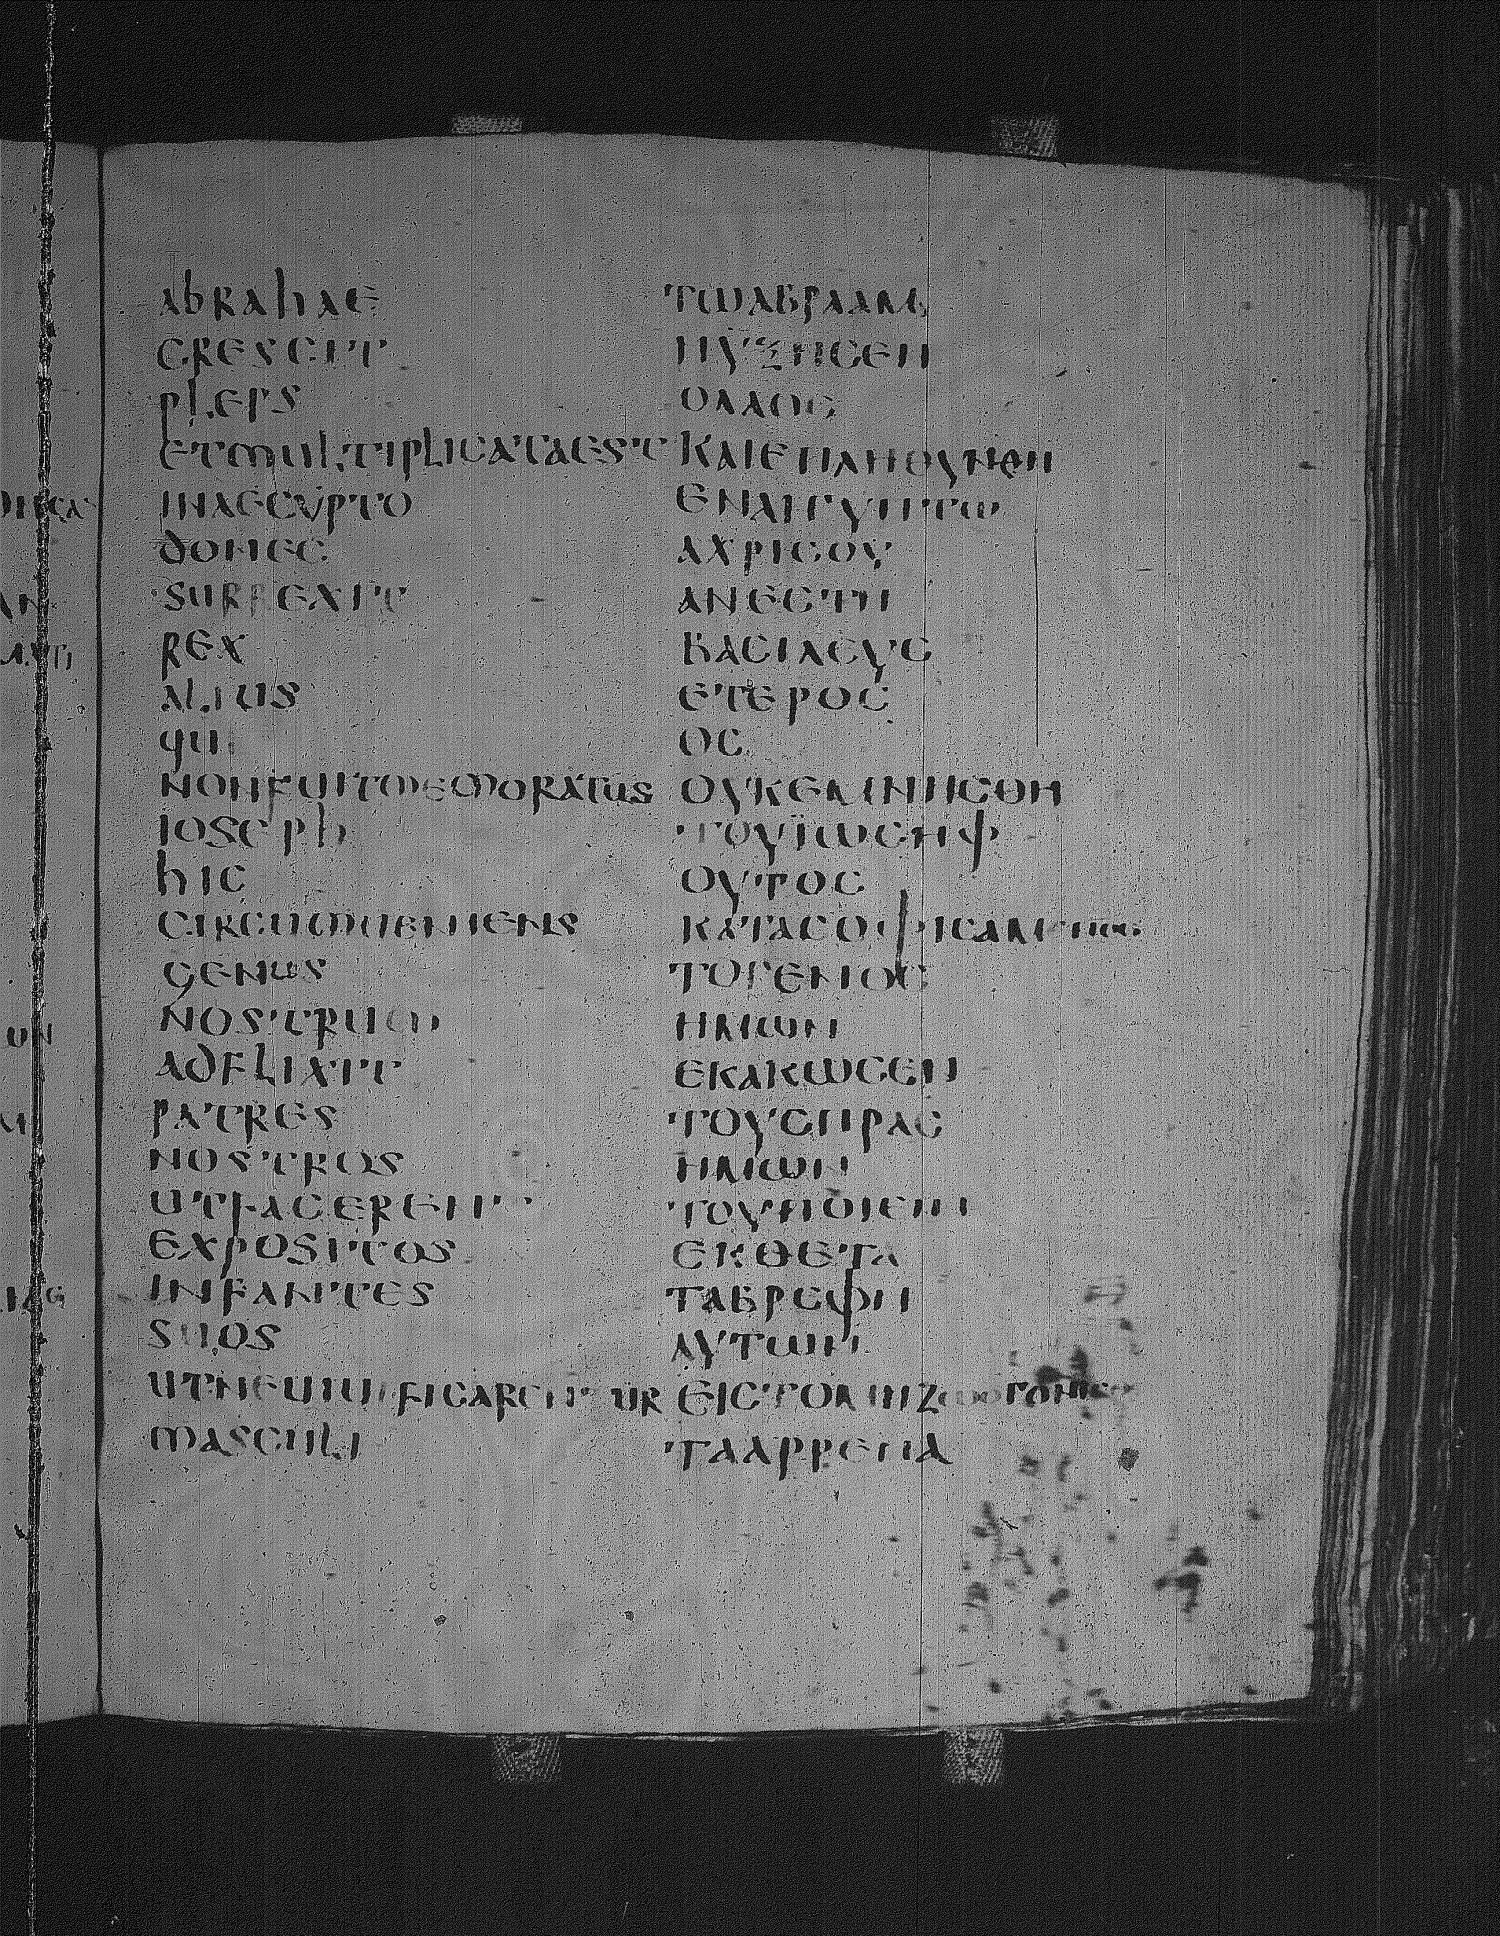 abrahae
crescit
pleps
etmultiplicataest
inaegypto
donec
surrexit
rex
alius
qui
nonfuitmemoratus
ioseph
hic
circumueniens
genus
nostrum
adflixit
patres
nostros
utfacerent
expositos
infantes
suos
utneuiuificarentur
masculi
ΤΩΑΒΡΑΑΜ
ΗΥΞΗCΕΝ
ΟΛΑΟC
ΚΑΙΕΠΛΗΘΥΝΘΗ
ΕΝΑΙΓΥΠΤΩ
ΑΧΡΙCΟΥ
ΑΝΕCΤΗ
ΒΑCΙΛΕΥC
ΕΤΕΡΟC
ΟC
ΟΥΚΕΜΝΗCΘΗ
ΤΟΥΪΩCΗΦ
ΟΥΤΟC
ΚΑΤΑCΟΦΙCΑΜΕΝΟC
ΤΟΓΕΝΟC
ΗΜΩΝ
ΕΚΑΚΩCΕΝ
ΤΟΥCΠΡΑC
ΗΜΩΝ
ΤΟΥΠΟΙΕΙΝ
ΕΚΘΕΤΑ
ΤΑΒΡΕΦΗ
ΑΥΤΩΝ
ΕΙCΤΟΜΗ
ΤΑΑΡΡΕΝΑ